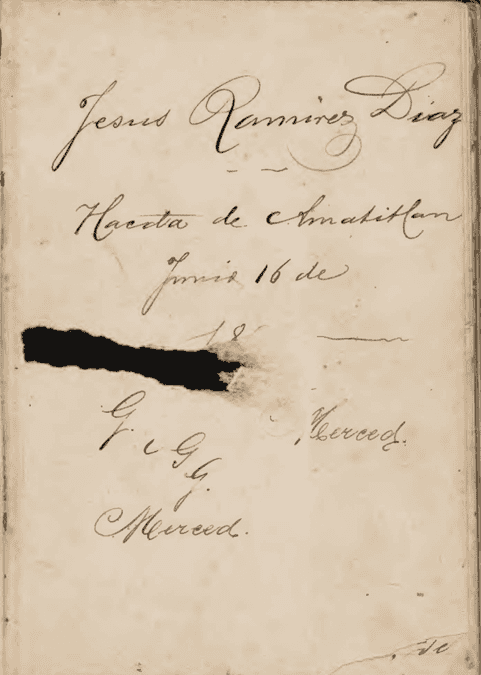 Jesus Ramirez Diaz
Hacda de Amatitlan
Junio 16 de
18
G. Merced.
G
G.
Merced.
de